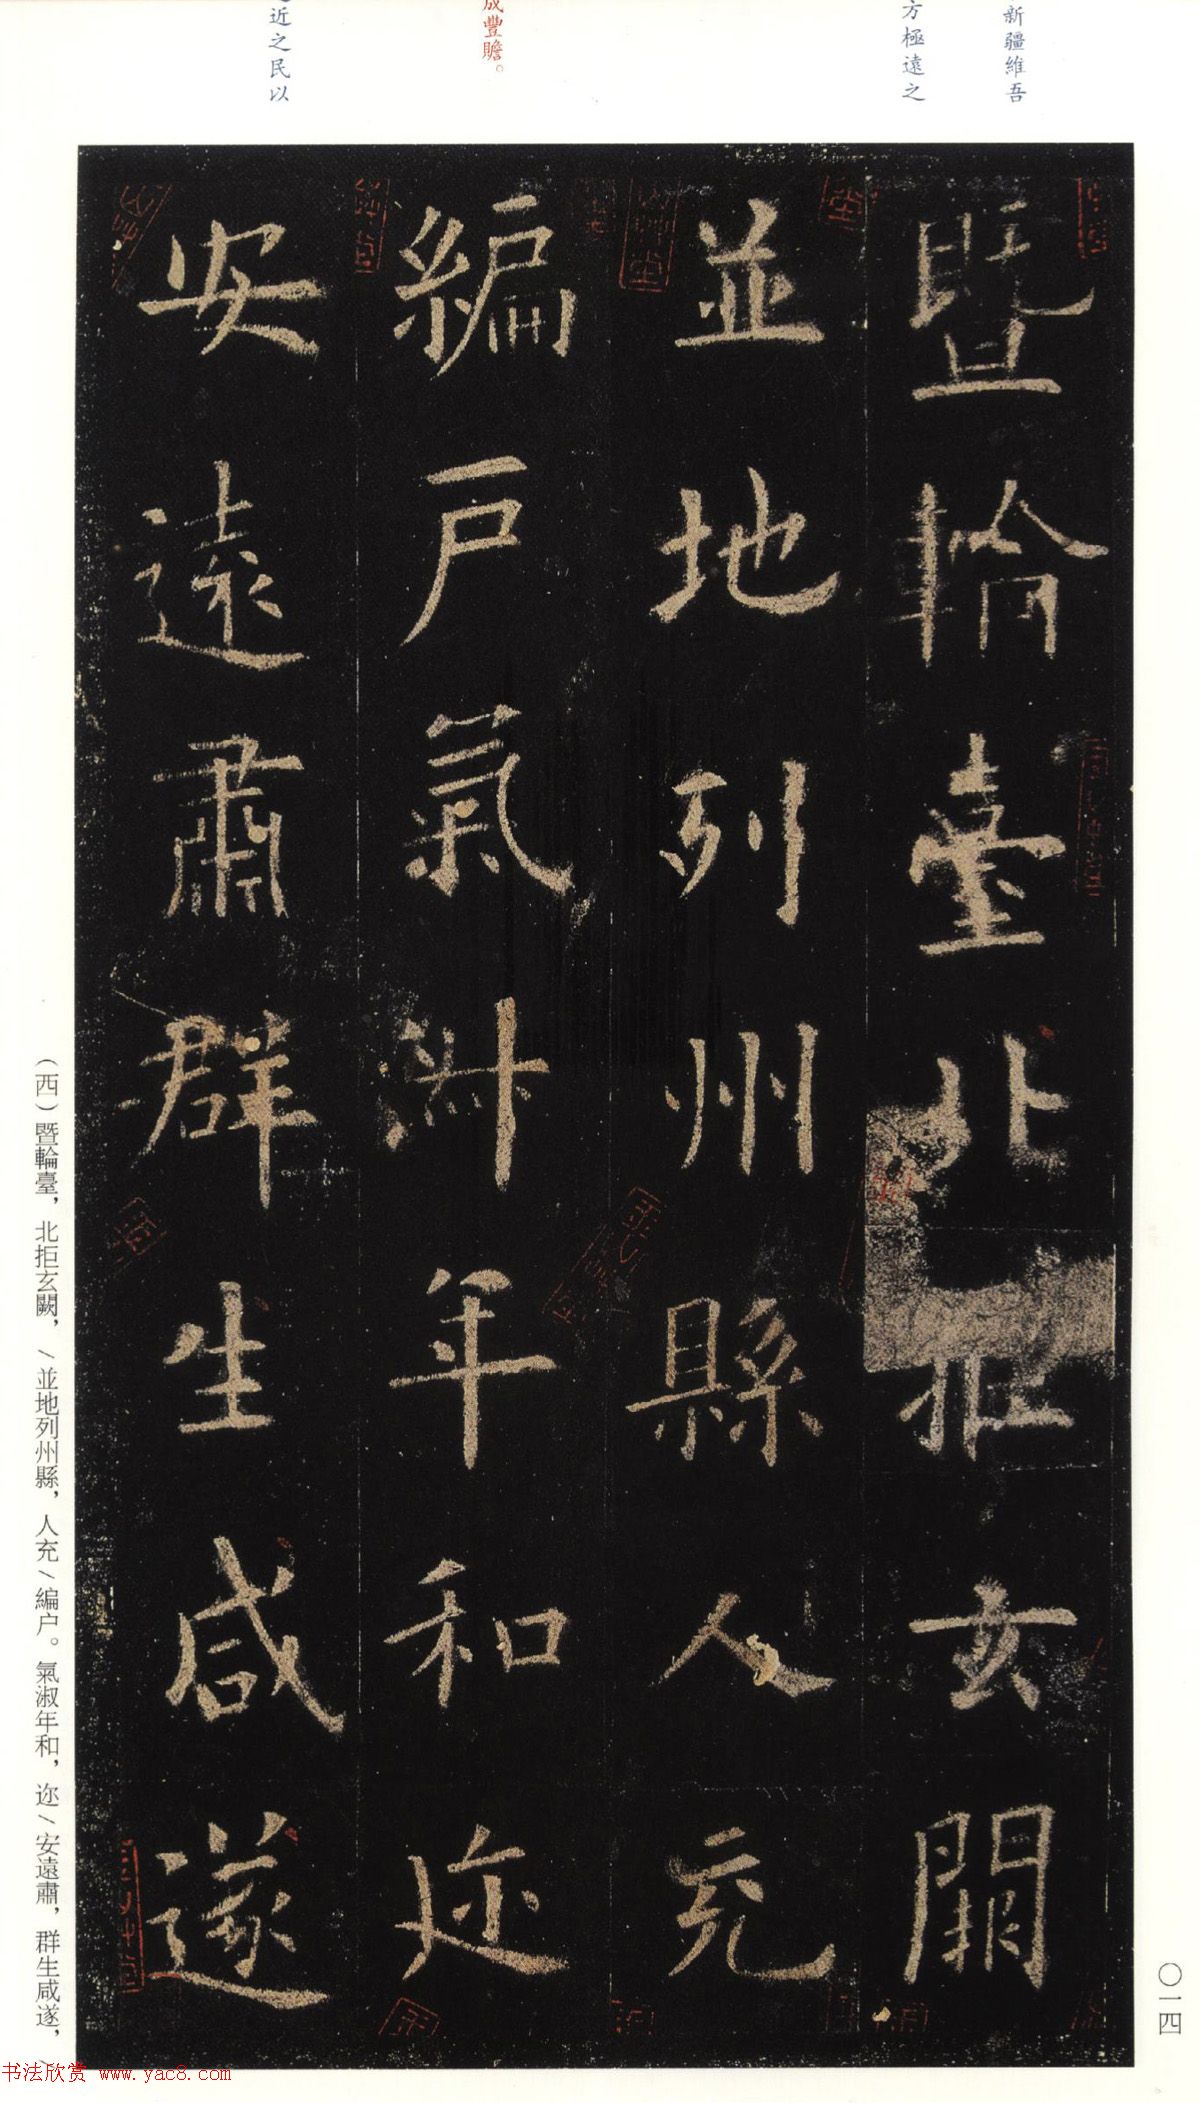 新疆維吾
方極遠之
成豐贍。
近之民以
暨輪臺北拒玄闕
並地列州縣人充
編戶氣淑年和迩
安遠肅群生咸遂
(西)暨輪臺，北拒玄闕，\並地列州縣，人充\編户。氣淑年和，迩\安遠肅，群生咸遂，\
〇一四
书法欣赏 www.yac8.com